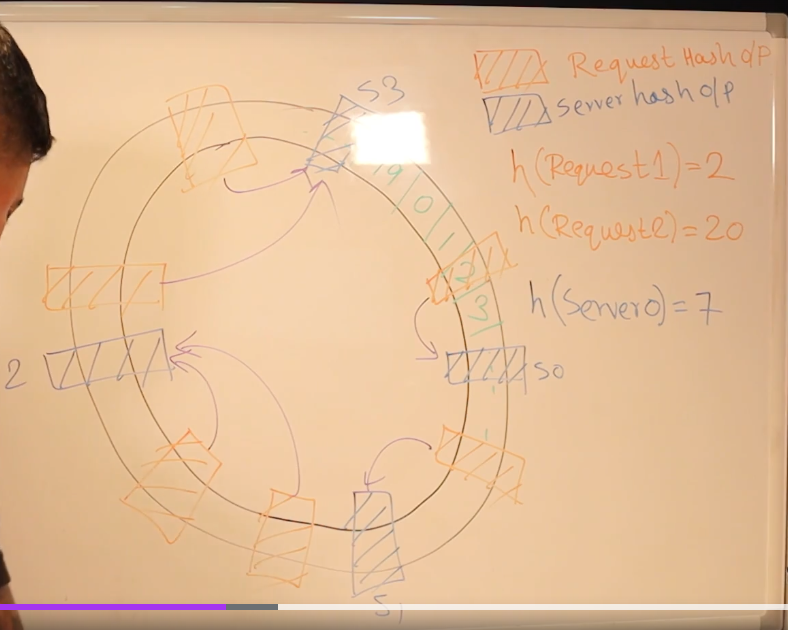 Request Hash O/P
server hash O/P
h(Request1)=2
h(Request2)=20
h(Server0)=7
S3
9
0
1
2
3
S0
2
S1